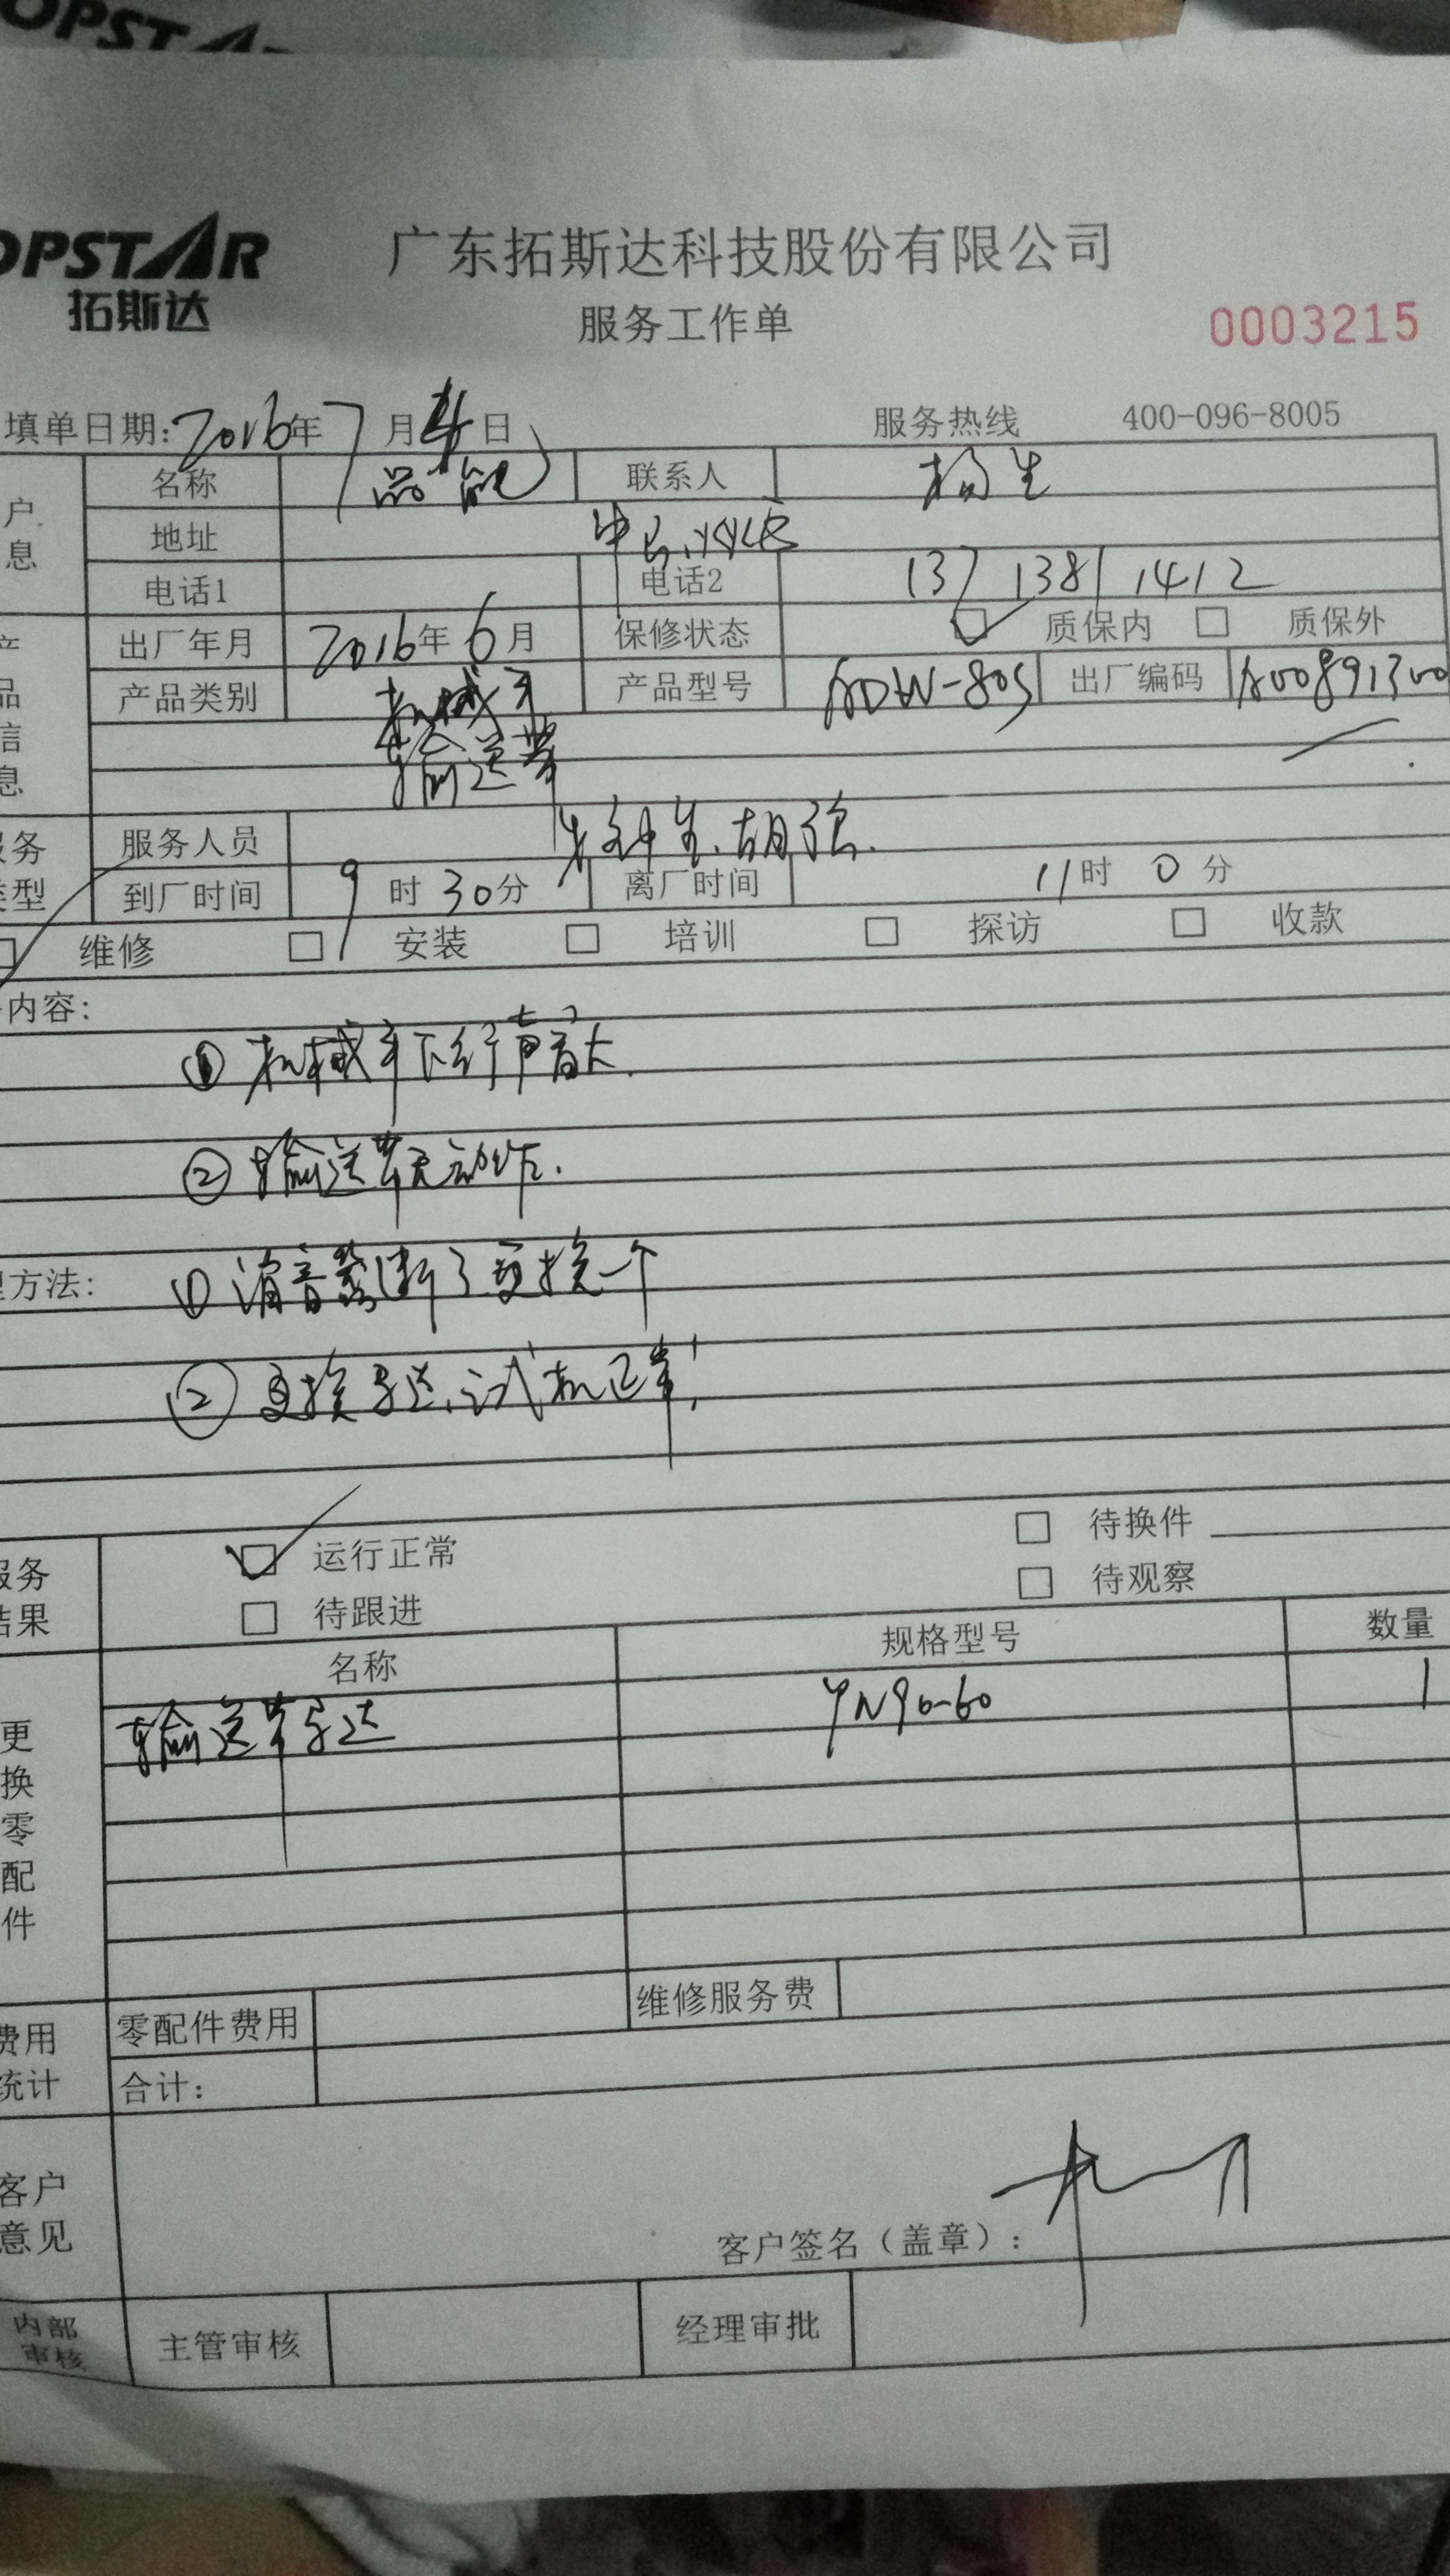 OPSTAR
OPSTAR 广东拓斯达科技股份有限公司
拓斯达 服务工作单 0003215
填单日期: 2016年 7月 4日 服务热线 400-096-8005
户 名称 品能 联系人 杨生
息 地址 中山
电话1 电话2 137 1381 1412
出厂年月 2016年 6月 保修状态 质保内 质保外
品 产品类别 机械手 产品型号 ADW-80S 出厂编码 A00891300
信 输送带
息
服务 服务人员 胡强.
类型 到厂时间 9时 30分 离厂时间 11时 0分
维修 安装 培训 探访 收款
内容:
① 机械手下行声音大.
② 输送带无动作.
理方法: ① 消音器断了更换一个
② 更换马达,试机正常,
服务 运行正常 待换件
结果 待跟进 待观察
名称 规格型号 数量
更 输送带马达 YN90-60 1
换
零
配
件
费用 零配件费用 维修服务费
统计 合计:
客户
意见 客户签名（盖章）:
内部 主管审核 经理审批
审核